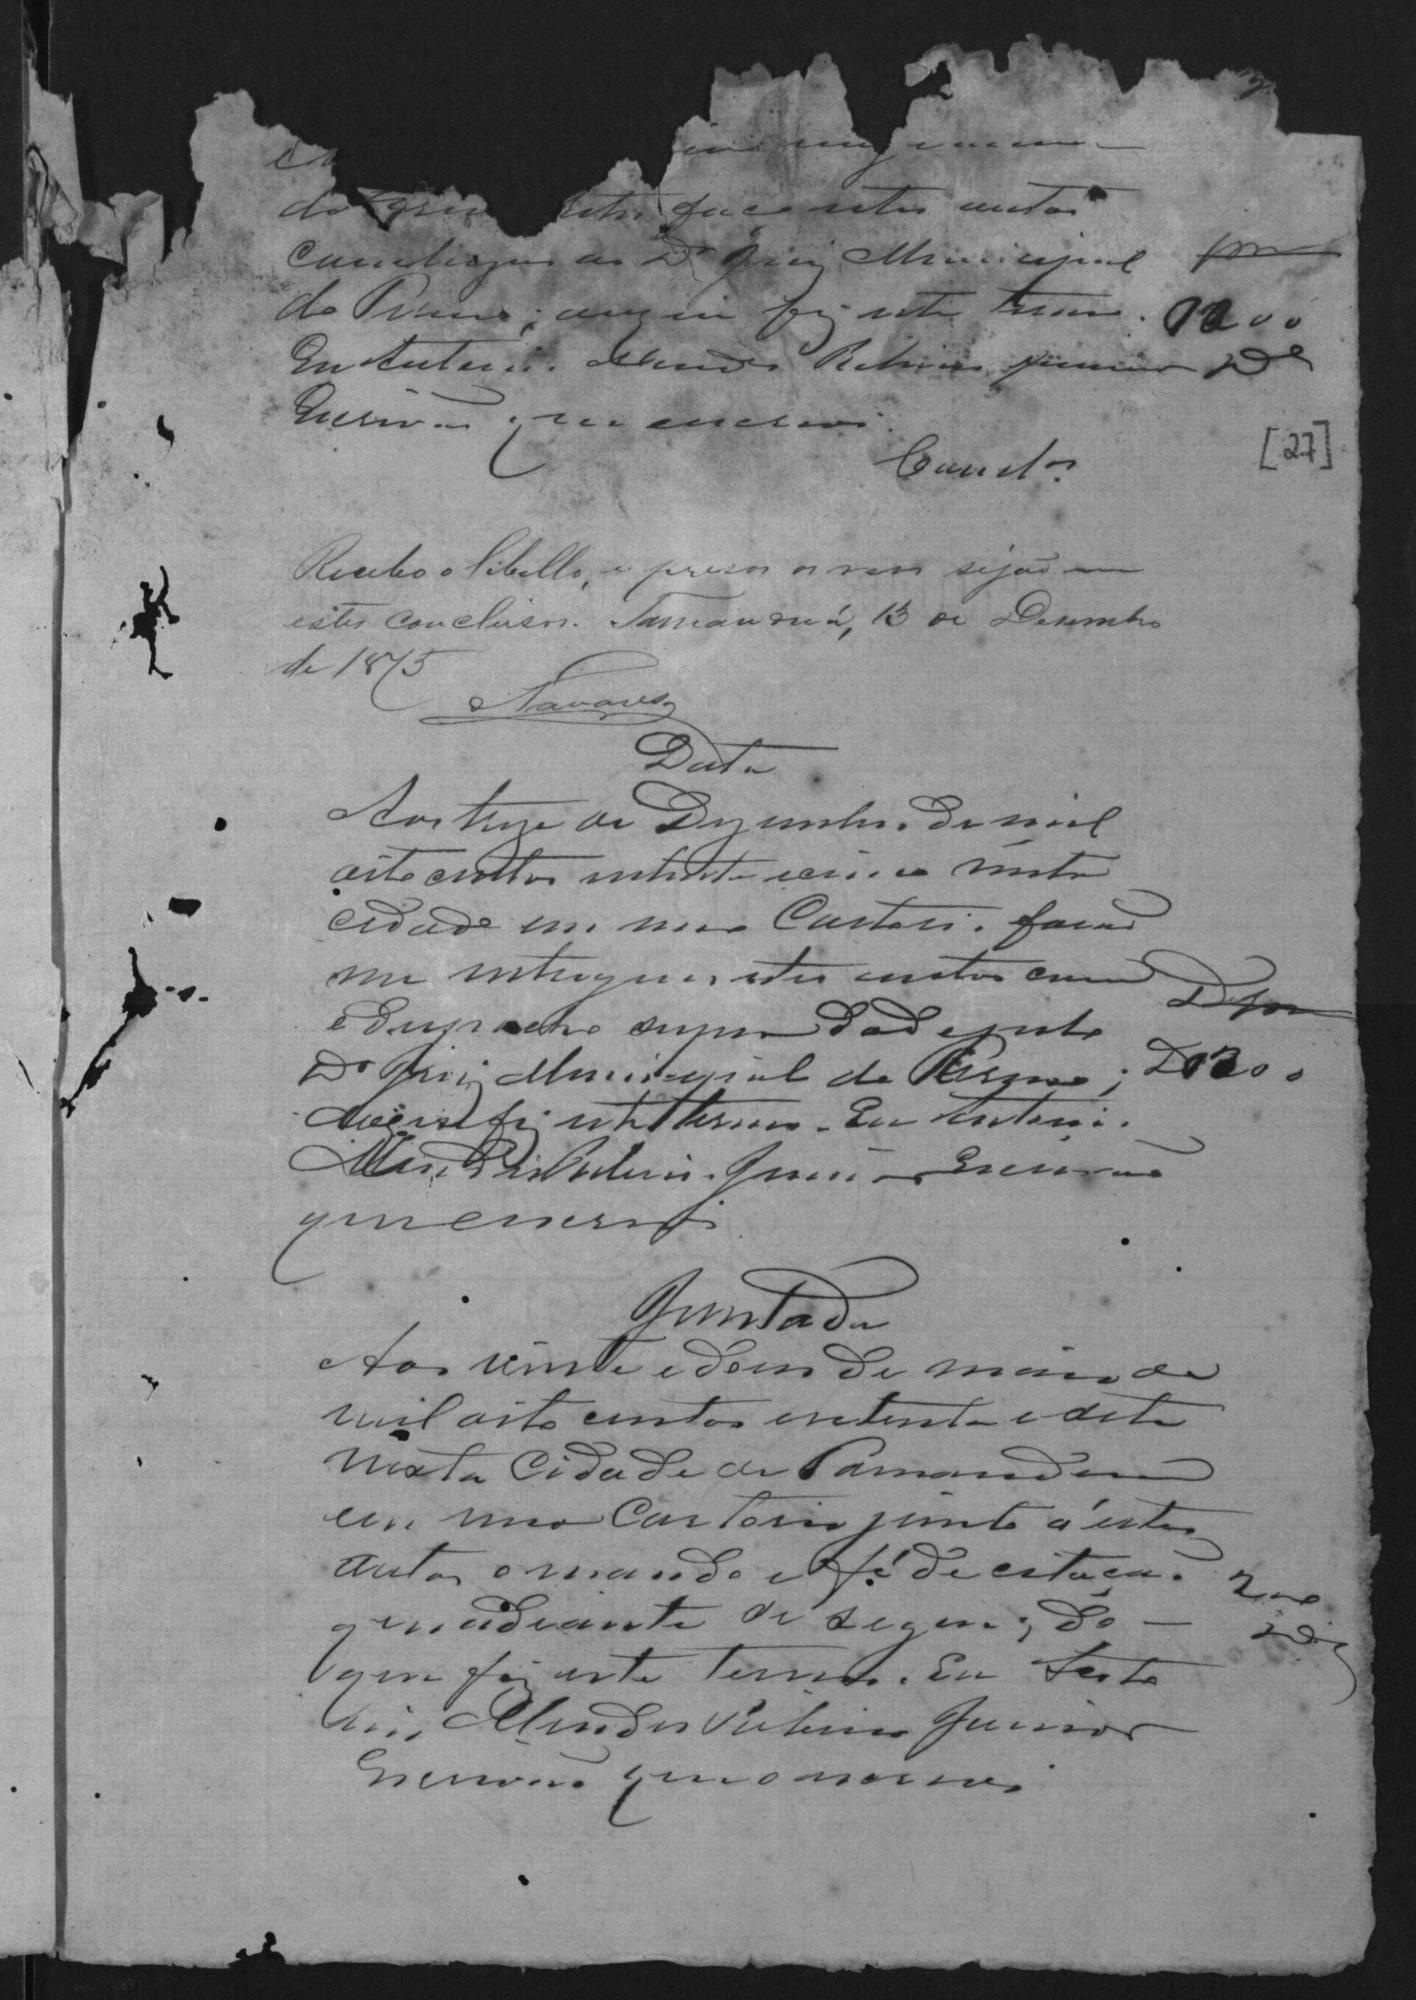 faço estes autos
conclusos ao Dr Juiz Municipal
do Termo; do que fiz este termo. 1200
Eu Antonio Mendes Ribeiro Junior
Escrivão que escrevi.
Concl.os
[27]
Recebo o libello, e presos os reos sejão me
estes conclusos. Tamanduá, 13 de Desembro
de 1875
Tavares
Data
Aos treze de Dezembro de mil
oito centos setenta e cinco nesta
cidade em meo Cartorio forão
me entregues estes autos com
o despacho supra do
Dr Juiz Municipal do Termo; D1200
fiz este termo. Eu Antonio
Mendes Ribeiro Junior Escrivão
que escrevi
Juntada
Aos vinte e dous de maio de
mil oito centos e setenta e sete
nesta Cidade de Tamanduá
em meo Cartorio junto á estes
autos o mandado e fé de citação
que adiante se segue; do
que fiz este termo. Eu Anto
nio Mendes Ribeiro Junior
Escrivão que o escrevi